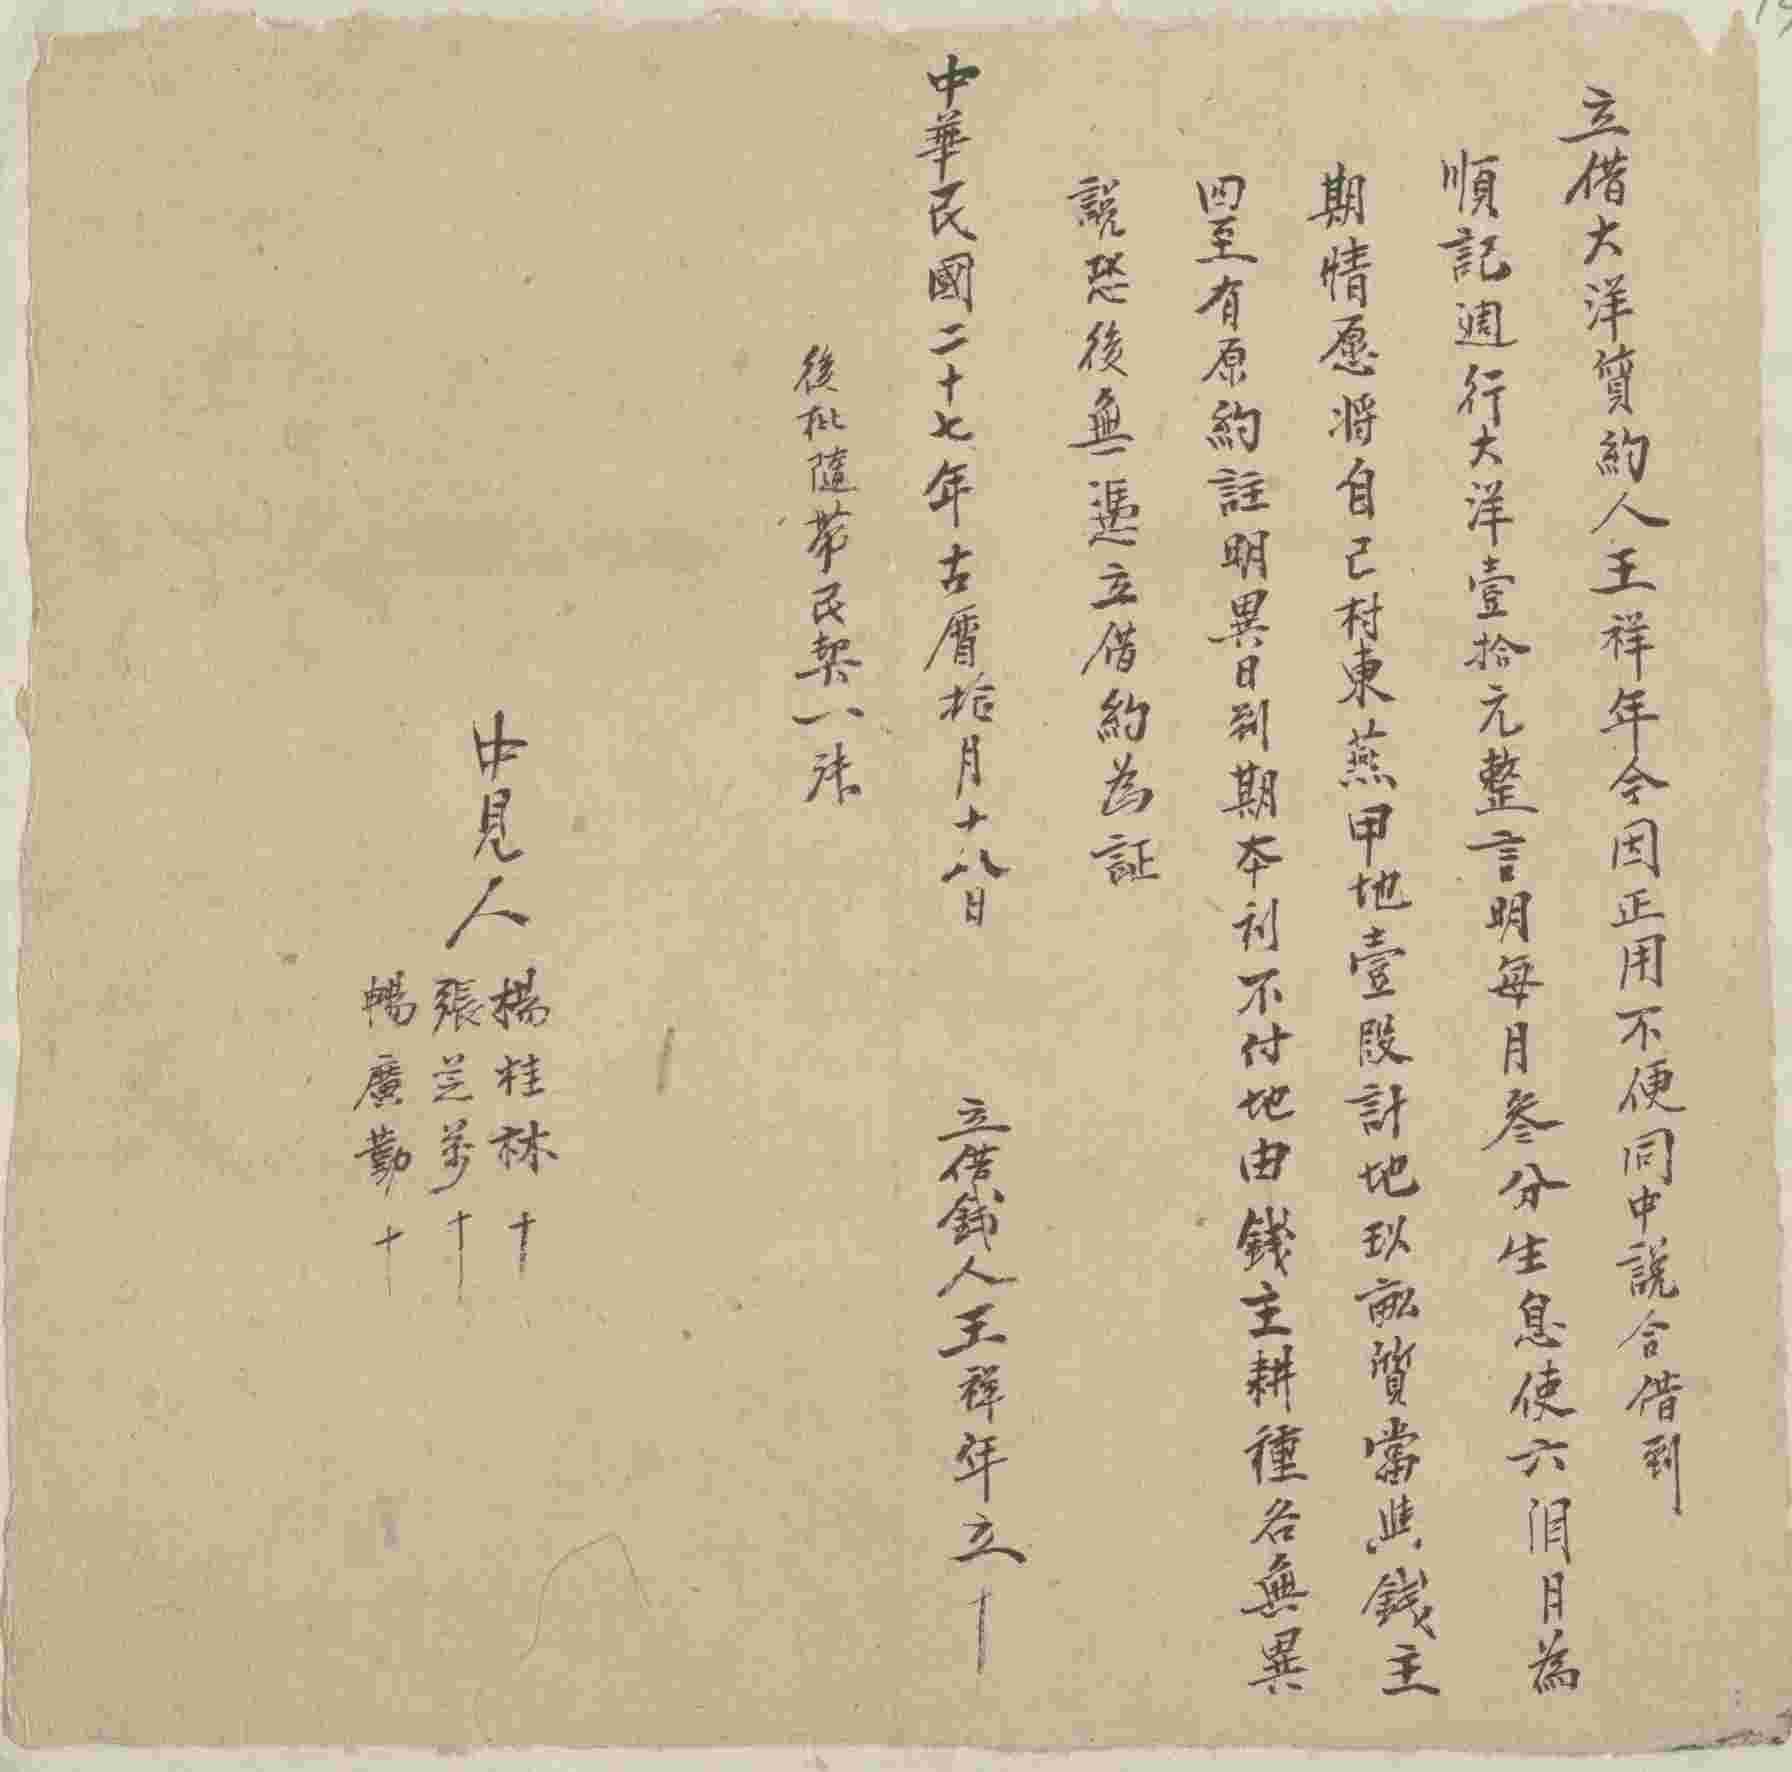 立借大洋質約人王祥年今因正用不便同中説合借到
順記週行大洋壹拾元整言明每月叁分生息使六個月為
期情愿將自己村東燕甲地壹段計地玖畝質當與錢主
四至有原約註明異日到期本利不付地由錢主耕種各無異
説恐後無憑立借約為証
中華民國二十七年古曆拾月十八日 立借錢人王祥年立十
後批隨帶民契一張
中見人
楊桂林十
張芝萬十
暢廣勤十